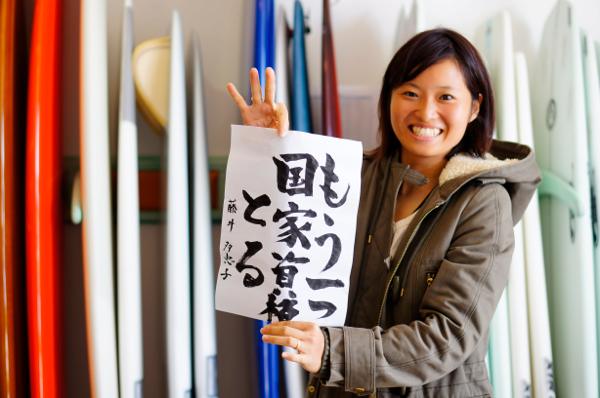 もう一つ
国家首種
とる
藤井多恵子